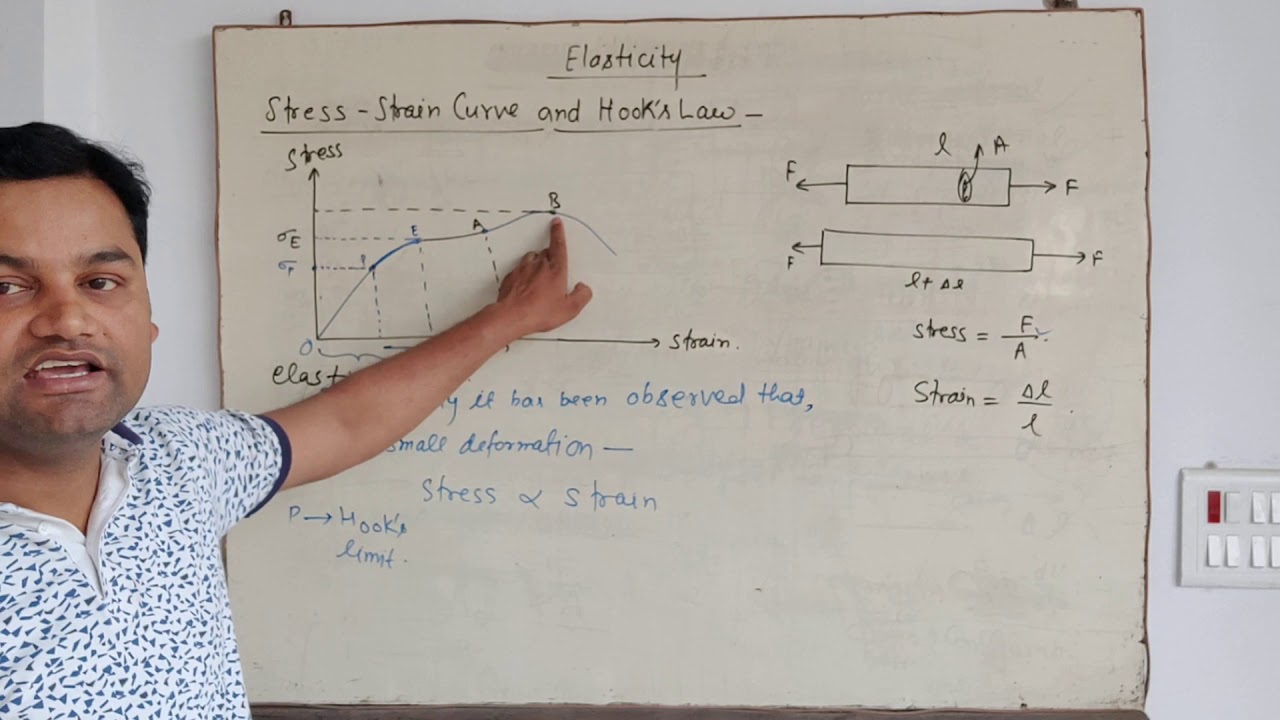 Elasticity
Stress - Strain Curve and Hook's Law -
Stress
B
A
E
σE
P
O
strain.
elasti
it has been observed that,
small deformation —
Stress ∝ Strain
P → Hook's
limit.
l A
F F
F F
l + Δl
Stress = F/A
Strain = Δl/l